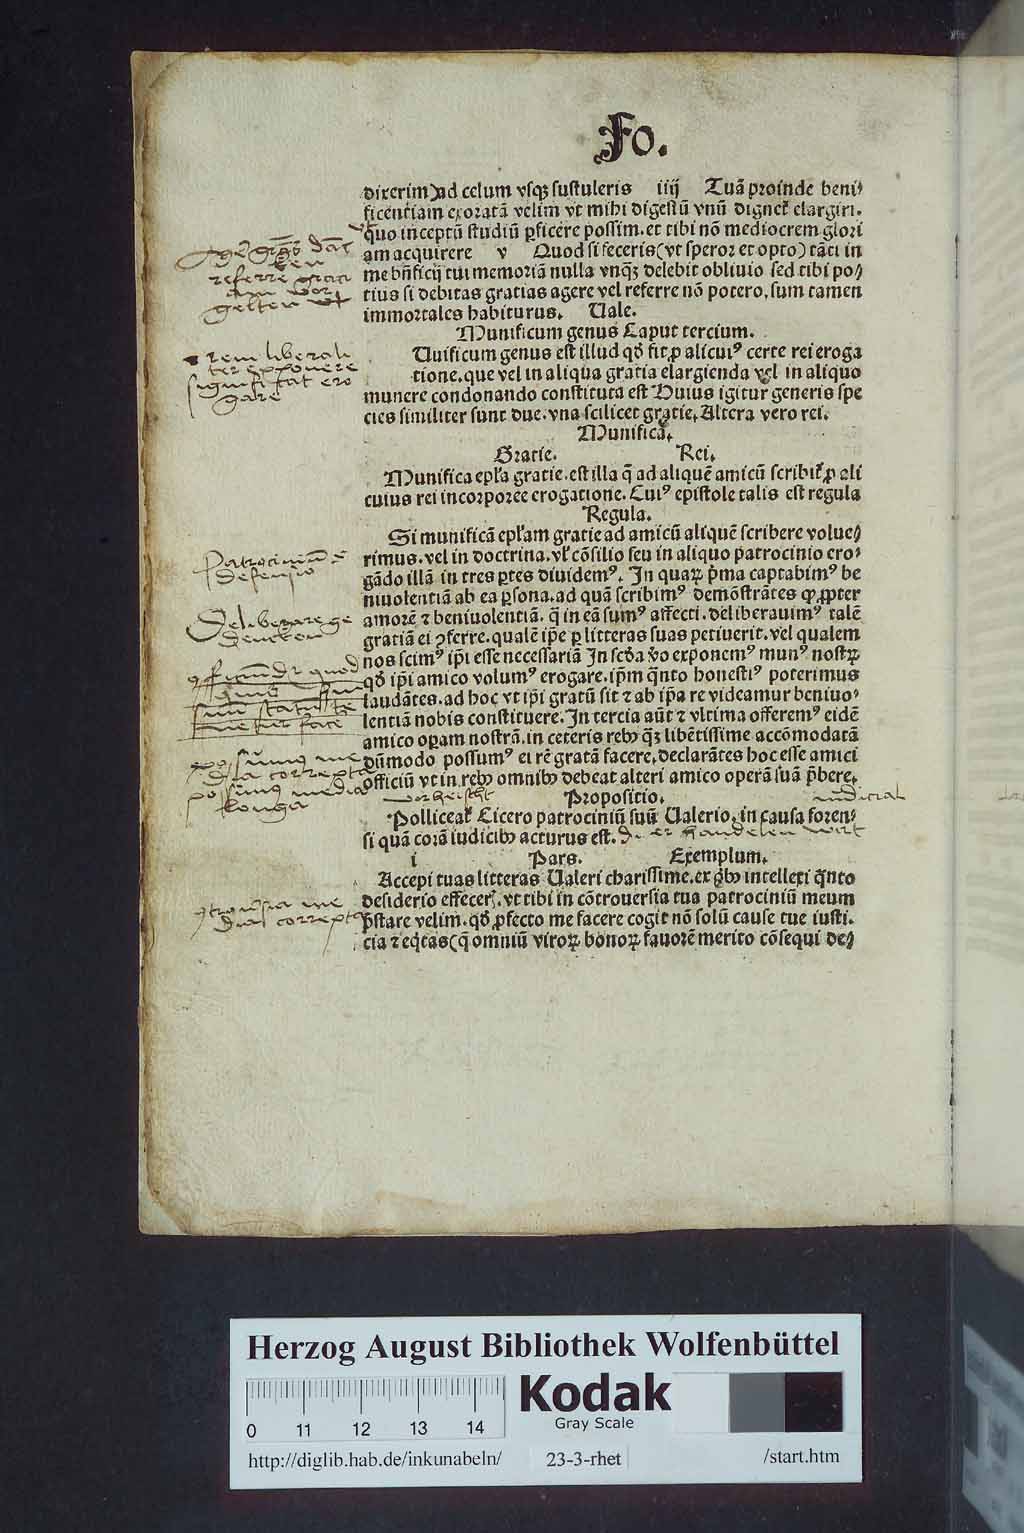 Fo.
dixerim)ad celum vsqꝫ sustuleris iiij Tuā proinde beni⸗
ficentiam exoratā velim vt mihi digestū vnū dignet᷑ elargiri.
quo inceptū studiū ꝑficere possim. et tibi nō mediocrem glori
am acquirere v Quod si feceris(vt speror et opto) tāti in
me bn̄ficij tui memoriā nulla vnqꝫ delebit obliuio sed tibi po⸗
tius si debitas gratias agere vel referre nō potero, sum tamen
immortales habiturus. Uale.
Munificum genus Caput tercium.
Uuificum genus est illud qđ fit ꝓ alicuiꝰ certe rei eroga
tione. que vel in aliqua gratia elargienda vel in aliquo
munere condonando constituta est Huius igitur generis spe
cies similiter sunt due. vna scilicet gratie. Altera vero rei.
Munificā.
Gratie. Rei.
Munifica epl̄a gratie. est illa q̄ ad aliquē amicū scribit᷑ ꝓ ali
cuius rei incorporee erogatione. Cuiꝰ epistole talis est regula
Regula.
Si munificā epl̄am gratie ad amicū aliquē scribere volue⸗
rimus. vel in doctrina. vl̄ cōsilio seu in aliquo patrocinio ero⸗
gādo illā in tres ꝑtes diuidemꝰ. In quaꝝ p̄ma captabimꝰ be
niuolentiā ab ea ꝑsona. ad quā scribimꝰ demōstrātes ꝙ ꝓpter
amorē ⁊ beniuolentiā. q̄ in eā sumꝰ affecti. deliberauimꝰ talē
gratiā ei ꝯferre. qualē ip̄e ꝑ litteras suas petiuerit. vel qualem
nos scimꝰ ip̄i esse necessariā In scđa v̄o exponemꝰ munꝰ nostꝝ
qđ ip̄i amico volumꝰ erogare. ip̄m q̄nto honestiꝰ poterimus
laudātes. ad hoc vt ip̄i gratū sit ⁊ ab ip̄a re videamur beniuo⸗
lentiā nobis constituere. In tercia aūt ⁊ vltima offeremꝰ eidē
amico oꝑam nostrā. in ceteris rebꝰ q̄ꝫ libētissime accōmodatā
dūmodo possumꝰ ei rē gratā facere. declarātes hoc esse amici
officiū vt in rebꝰ omnibꝰ debeat alteri amico operā suā p̄bere.
Propositio.
Polliceat᷑ Cicero patrociniū suū Ualerio. in causa foren⸗
si quā corā iudicibꝰ acturus est. der handelen wirt
i Pars. Exemplum.
Accepi tuas litteras Ualeri charissime. ex qͥbꝰ intellexi q̄nto
desiderio effeceris. vt tibi in cōtrouersia tua patrociniū meum
p̄stare velim. qđ ꝓfecto me facere cogit nō solū cause tue iusti⸗
cia ⁊ eq̄tas(q̄ omniū viroꝝ bonoꝝ fauorē merito cōsequi de⸗
referre grati
gelten
rem liberali
ter exponere
significat ero
gare
Patrocinium ē
defensio
Deliberare ge
dencken
possumus me
dia correpta
possimus media
longa
vorheischt
iudicial
dia correpta
Herzog August Bibliothek Wolfenbüttel
0 11 12 13 14
Kodak
Gray Scale
http://diglib.hab.de/inkunabeln/ 23-3-rhet /start.htm